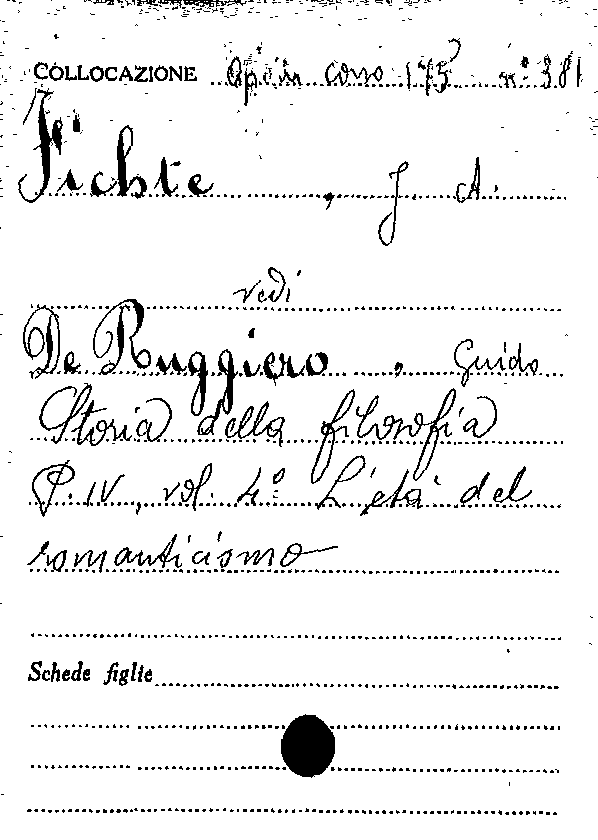 COLLOCAZIONE Op. in corso 175 n° 381
Fichte, J. A.
vedi
De Ruggiero, Guido
Storia della filosofia
P. IV, vol. 4° L'età del
romanticismo
Schede figlie